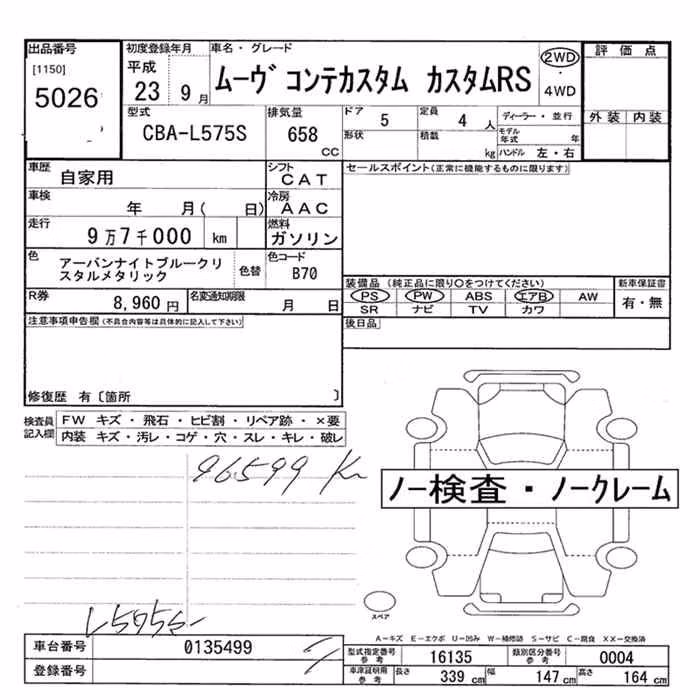 出品番号
[1150]
5026
初度登録年月
平成
23 9月
車名・グレード
ムーヴ コンテカスタム カスタムRS
2WD
・
4WD
評価点
外装 内装
型式
CBA-L575S
排気量
658
CC
ドア
5
定員
4人
ディーラー・並行
形状
積載
kg
モデル年式 年
ハンドル 左・右
車歴
自家用
シフト
CAT
車検
年 月( 日)
冷房
AAC
走行
9万7千000 km
燃料
ガソリン
色
アーバンナイトブルークリ
スタルメタリック
色替
色コード
B70
R券
8,960 円
名変通知期限
月 日
セールスポイント(正常に機能するものに限ります)
装備品 (純正品に限り○をつけてください)
新車保証書
PS PW ABS エアB AW
有・無
SR ナビ TV カワ
後日品
注意事項申告欄(不具合内容等は具体的に記入して下さい)
修復歴 有〔箇所 〕
検査員
記入欄
FW キズ・飛石・ヒビ割・リペア跡・×要
内装 キズ・汚レ・コゲ・穴・スレ・キレ・破レ
96599 Km
ノー検査・ノークレーム
スペア
L575S-
A-キズ E-エクボ U-凹み W-補修跡 S-サビ C-腐食 XX-交換済
車台番号
0135499
登録番号
型式指定番号
参考
16135
類別区分番号
参考
0004
車庫証明用
参考
長さ
339 cm
幅
147 cm
高さ
164 cm